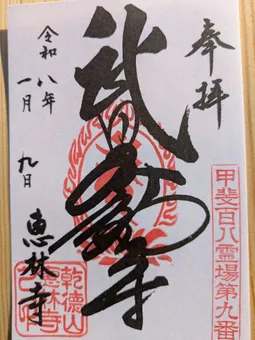 奉拝
甲斐百八霊場第九番
武田不動尊
令和八年
一月九日
恵林寺
乾徳山